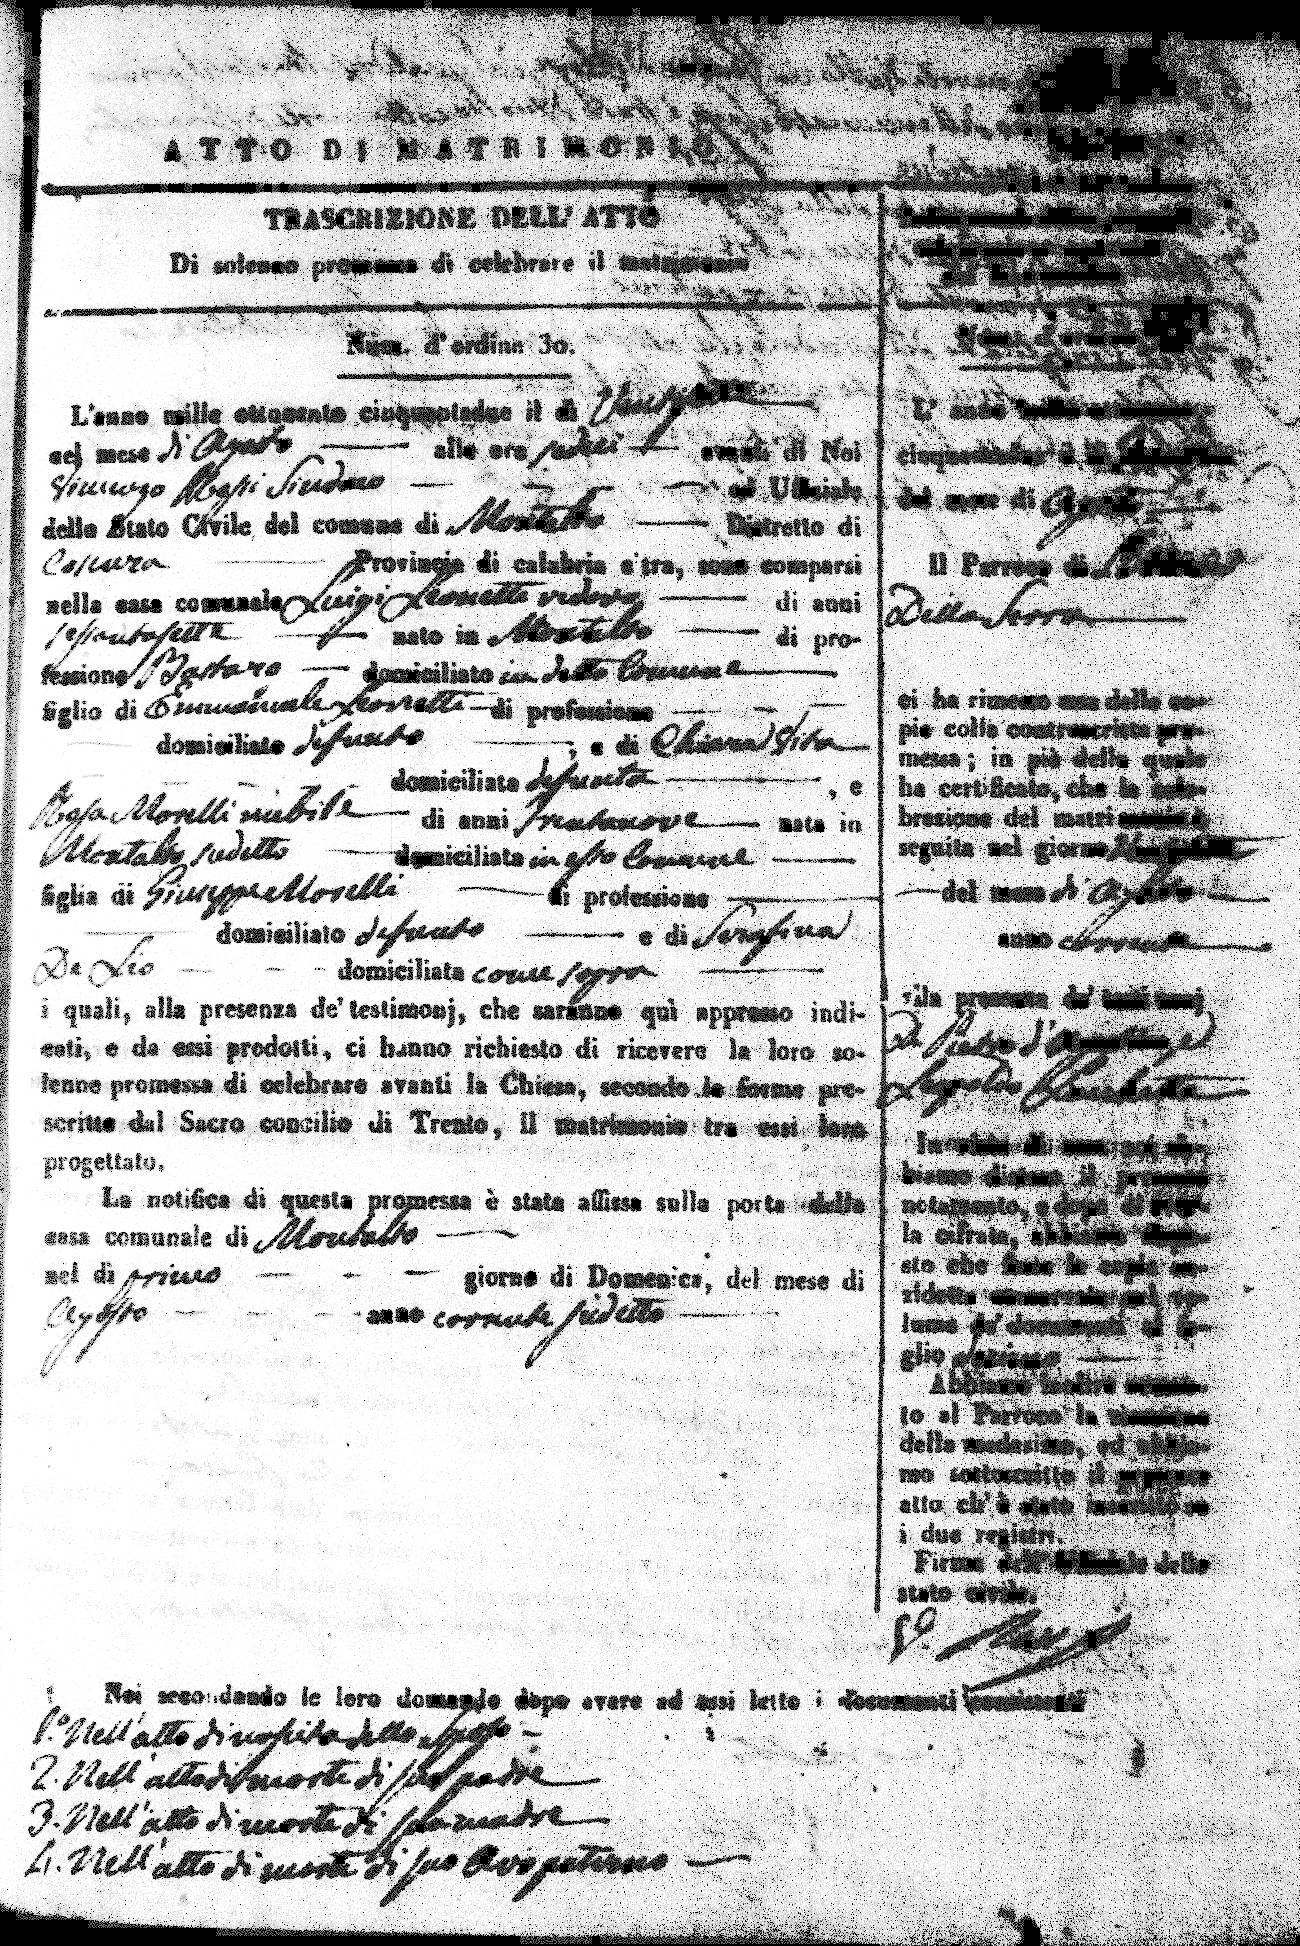 ATTO DI MATRIMONIO
TRASCRIZIONE DELL' ATTO
Di solenne promessa di celebrare il matrimonio
Num. d'ordine 30.
L'anno mille ottocento cinquantadue il dì
nel mese di Agosto alle ore sedici avanti di Noi
Sindaco ed Uffiziale
dello Stato Civile del comune di Montalto Distretto di
Cosenza Provincia di calabria citra, sono comparsi
nella casa comunale Luigi Leonetti vedovo di anni
sessantasette nato in Montalto di pro-
fessione domiciliato in detto Comune
figlio di Emmanuele Leonetti di professione
domiciliato defunto , e di Chiara
domiciliata defunta , e
Rosa Morelli nubile di anni trentanove nata in
Montalto sudetto domiciliata in esso Comune
figlia di Giuseppe Morelli di professione
domiciliato defunto e di Serafina
De Lio domiciliata come sopra
i quali, alla presenza de' testimonj, che saranno quì appresso indi-
cati, e da essi prodotti, ci hanno richiesto di ricevere la loro so-
lenne promessa di celebrare avanti la Chiesa, secondo le forme pre-
scritte dal Sacro concilio di Trento, il matrimonio tra essi loro
progettato.
La notifica di questa promessa è stata affissa sulla porta della
casa comunale di Montalto
nel dì primo giorno di Domenica, del mese di
Agosto anno corrente sudetto
Num. d'ordine
L' anno mille ottocento
cinquantadue il dì
del mese di Agosto
Il Parroco di
Della Serra
ci ha rimesso una delle co-
pie colla controscritta pro-
messa; in piè della quale
ha certificato, che la cele-
brazione del matrimonio è
seguita nel giorno
del mese di Agosto
anno corrente
alla presenza de' testimonj
D. Pietro d' ed
Leopoldo
In vista di
biamo disteso il presente
notamento, e dopo di
la cifrata, abbiamo dispo-
sto che fosse la copia su-
ridetta conservata nel vo-
lume de' documenti al fo-
glio
Abbiamo inoltre
to al Parroco la
della medesima, ed abbia-
mo sottoscritto il presente
atto ch'è stato inscritto su
i due registri.
Firma dell' Uffiziale dello
stato civile.
Noi secondando le loro domande dopo avere ad essi letto i documenti consistenti
1.º Nell'atto di nascita dello Sposo
2. Nell'atto di morte di suo padre
3. Nell'atto di morte di sua madre
4. Nell'atto di morte di suo Avo paterno